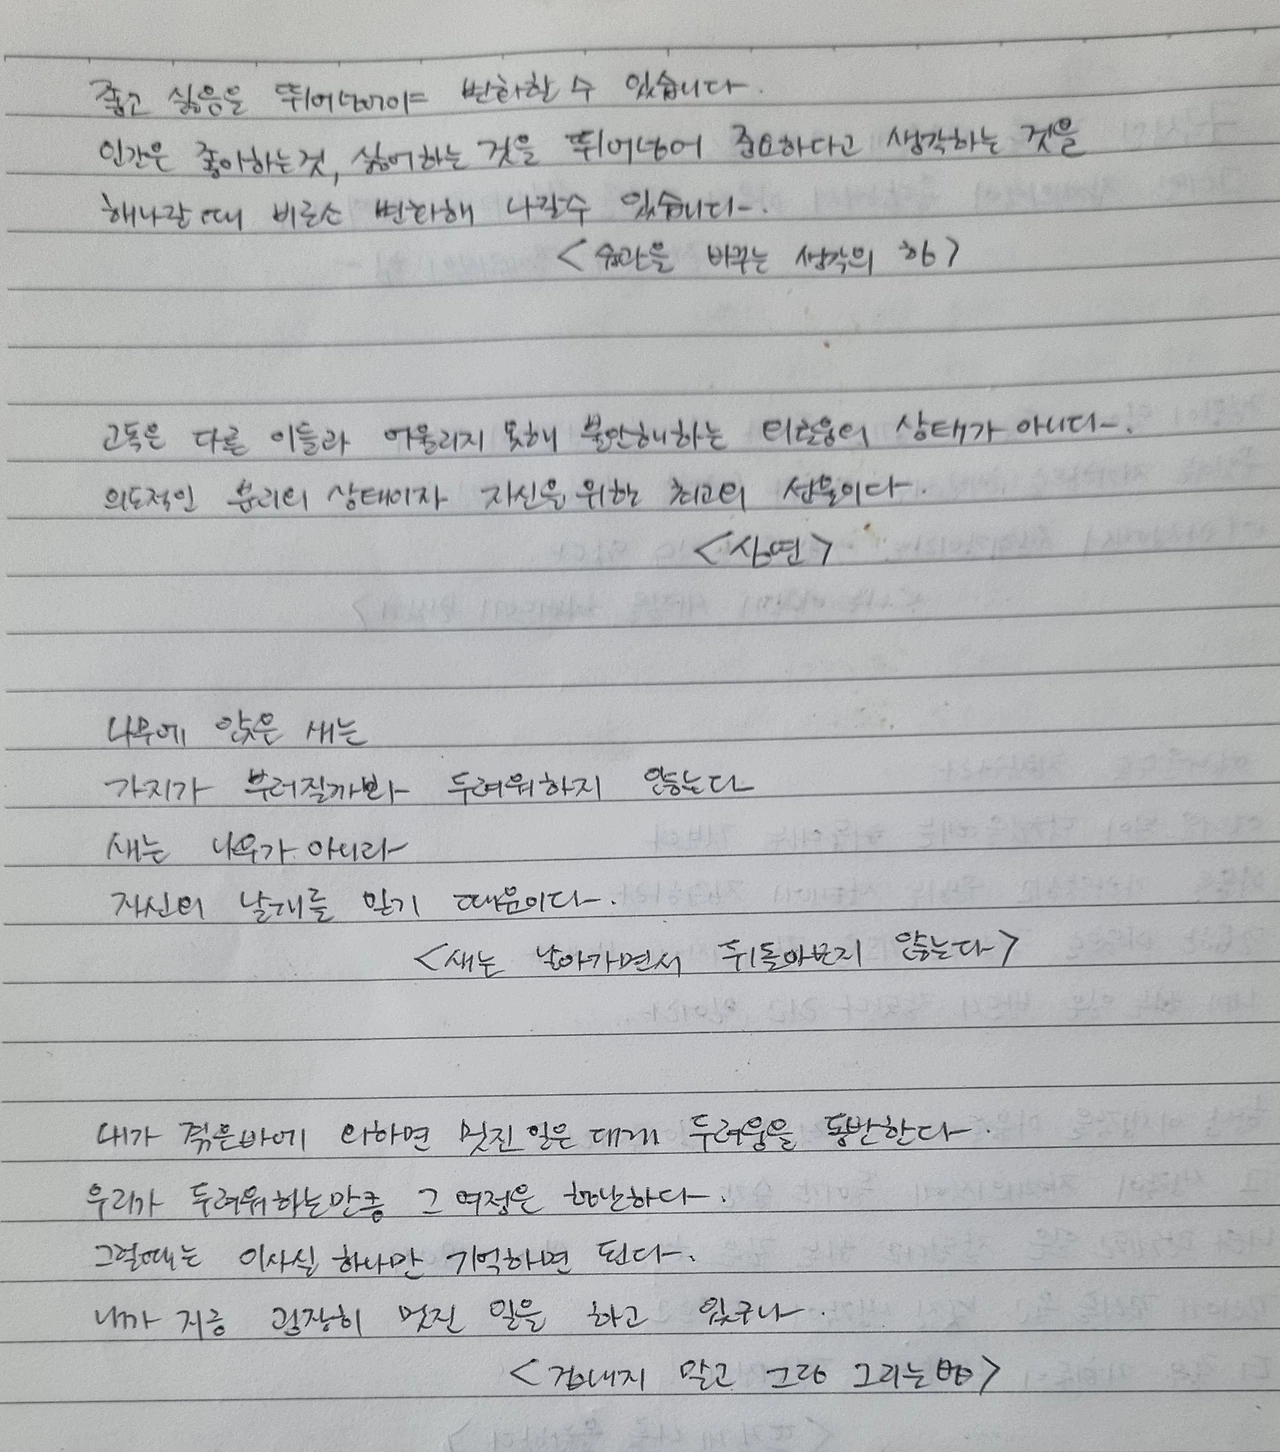 좋고 싫음을 뛰어넘어야 변화할 수 있습니다.
인간은 좋아하는것, 싫어하는 것을 뛰어넘어 중요하다고 생각하는 것을
해나갈때 비로소 변화해 나갈수 있습니다.
<습관을 바꾸는 생각의 힘>
고독은 다른 이들과 어울리지 못해 불안해하는 외로움의 상태가 아니다.
의도적인 분리의 상태이자 자신을 위한 최고의 선물이다.
<심연>
나무에 앉은 새는
가지가 부러질까봐 두려워하지 않는다
새는 나무가 아니라
자신의 날개를 믿기 때문이다.
<새는 날아가면서 뒤돌아보지 않는다>
내가 겪은바에 의하면 멋진 일은 대개 두려움을 동반한다.
우리가 두려워하는만큼 그 여정은 험난하다.
그럴때는 이사실 하나만 기억하면 된다.
내가 지금 굉장히 멋진 일을 하고 있구나.
<겁내지 말고 그림 그리는 법>